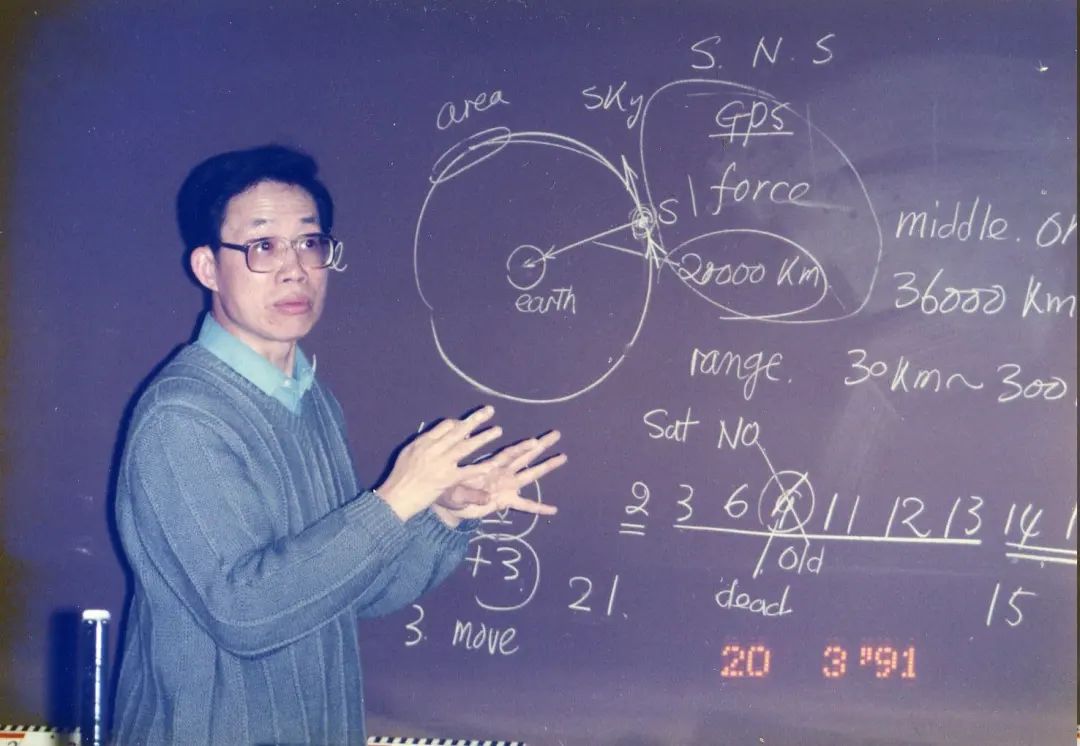 S. N. S
area
sky
GPS
S1
force
earth
20000 Km
middle.
36000 Km
range. 30Km~300
Sat NO
2 3 6 11 12 13 14
+3
21.
old
dead
15
3. move
20 3 '91